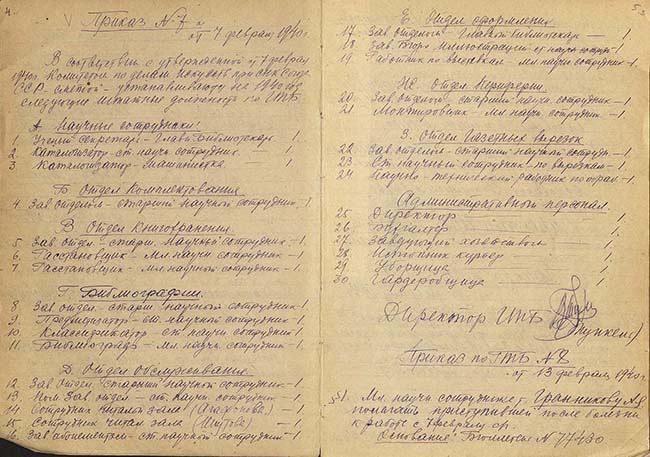 4.
Приказ № 7
от 7 февраля 1940 г.
В соответствии с утвержденной 7 февраля
1940г. Комитетом по делам искусств при
СССР сметой – устанавливаются на 1940 год
следующие штатные должности по
А Научные сотрудники:
1. Ученый секретарь – Главн. Библиотекарь – 1.
2. Каталогизатор – ст. научн. сотрудник – 1.
3. Каталогизатор – машинистка – 1.
Б Отдел Комплектования
4 Зав. отделом – старший научной сотрудник 1.
В Отдел Книгохранения
5 Зав. отдел. – старш. Научный сотрудник – 1.
6. Расстановщик – Мл. научн. сотрудник – 1.
7. Расстановщик – Мл. научный сотрудник – 1.
Г. Библиографии.
8 Зав. отдел – старш. научной сотрудник – 1
9 – научной сотрудник – 1.
10 Классификатор – ст. научн. сотрудник – 1.
11 Библиограф – мл. научн. сотрудник – 1.
Д. Отдел обслуживания.
12 Зав. Отдел старший научной сотрудник – 1.
13 Пом. Зав. отдел – ст. научн. сотрудник – 1.
14 Сотрудник читальн. зала (Агафонова) – 1
15 Сотрудник читал. зала – 1.
16. Зав. абонементом – ст. научной сотрудник – 1.
5
Е Отдел оформления
17 Зав. отделом – Главной библиотекарь – 1.
18 Зав. Бюро иллюстрации ст. научн. сотрудн. 1.
19 Работник по выставкам – мл. научн. сотрудник – 1.
Ж. Отдел Периферии.
20 Зав. отделом – старший научн. сотрудник – 1.
21 – Мл. научн. сотрудник – 1.
З. Отдел Газетных вырезок
22 Зав. отделом – старший научн. сотрудн. – 1.
23 Ст. научный сотрудник по вырезкам – 1.
24 Научно-технический работник – 1.
Административный персонал.
25 Директор – 1.
26 Бухгалтер – 1.
27. Заведующий хозяйством – 1.
28. Истопник курьер – 1.
29. Уборщица – 1.
30 Гардеробщица – 1.
Директор
Приказ по № 8
от 13 февраля 1940 г.
§1. Мл. научн. сотрудника т.
полагать приступившей после болезни
к работе с 7 февраля с/г.
Основание Бюллетень № 77430